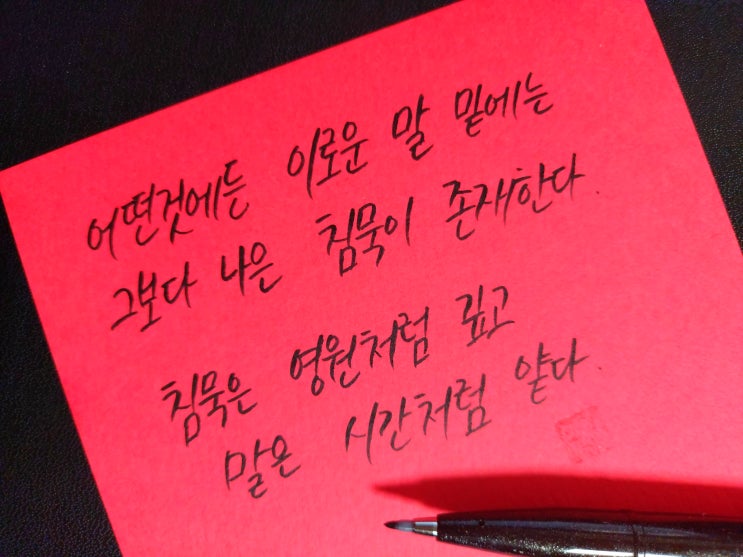 어떤것에든 이로운 말 밑에는
그보다 나은 침묵이 존재한다.
침묵은 영원처럼 깊고
말은 시간처럼 얕다